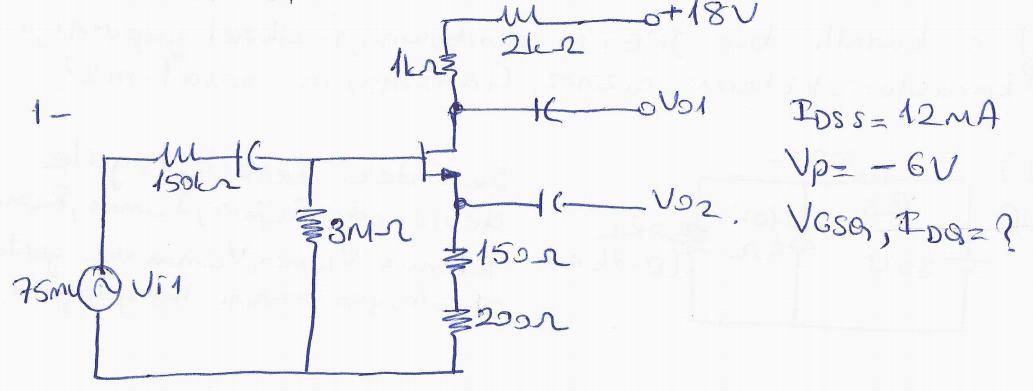 +18V
2kΩ
1kΩ
Vo1
1-
IDSS = 12mA
150kΩ
Vp = -6V
Vo2.
VGSQ, IDQ = ?
3MΩ
150Ω
75mv Vi1
200Ω